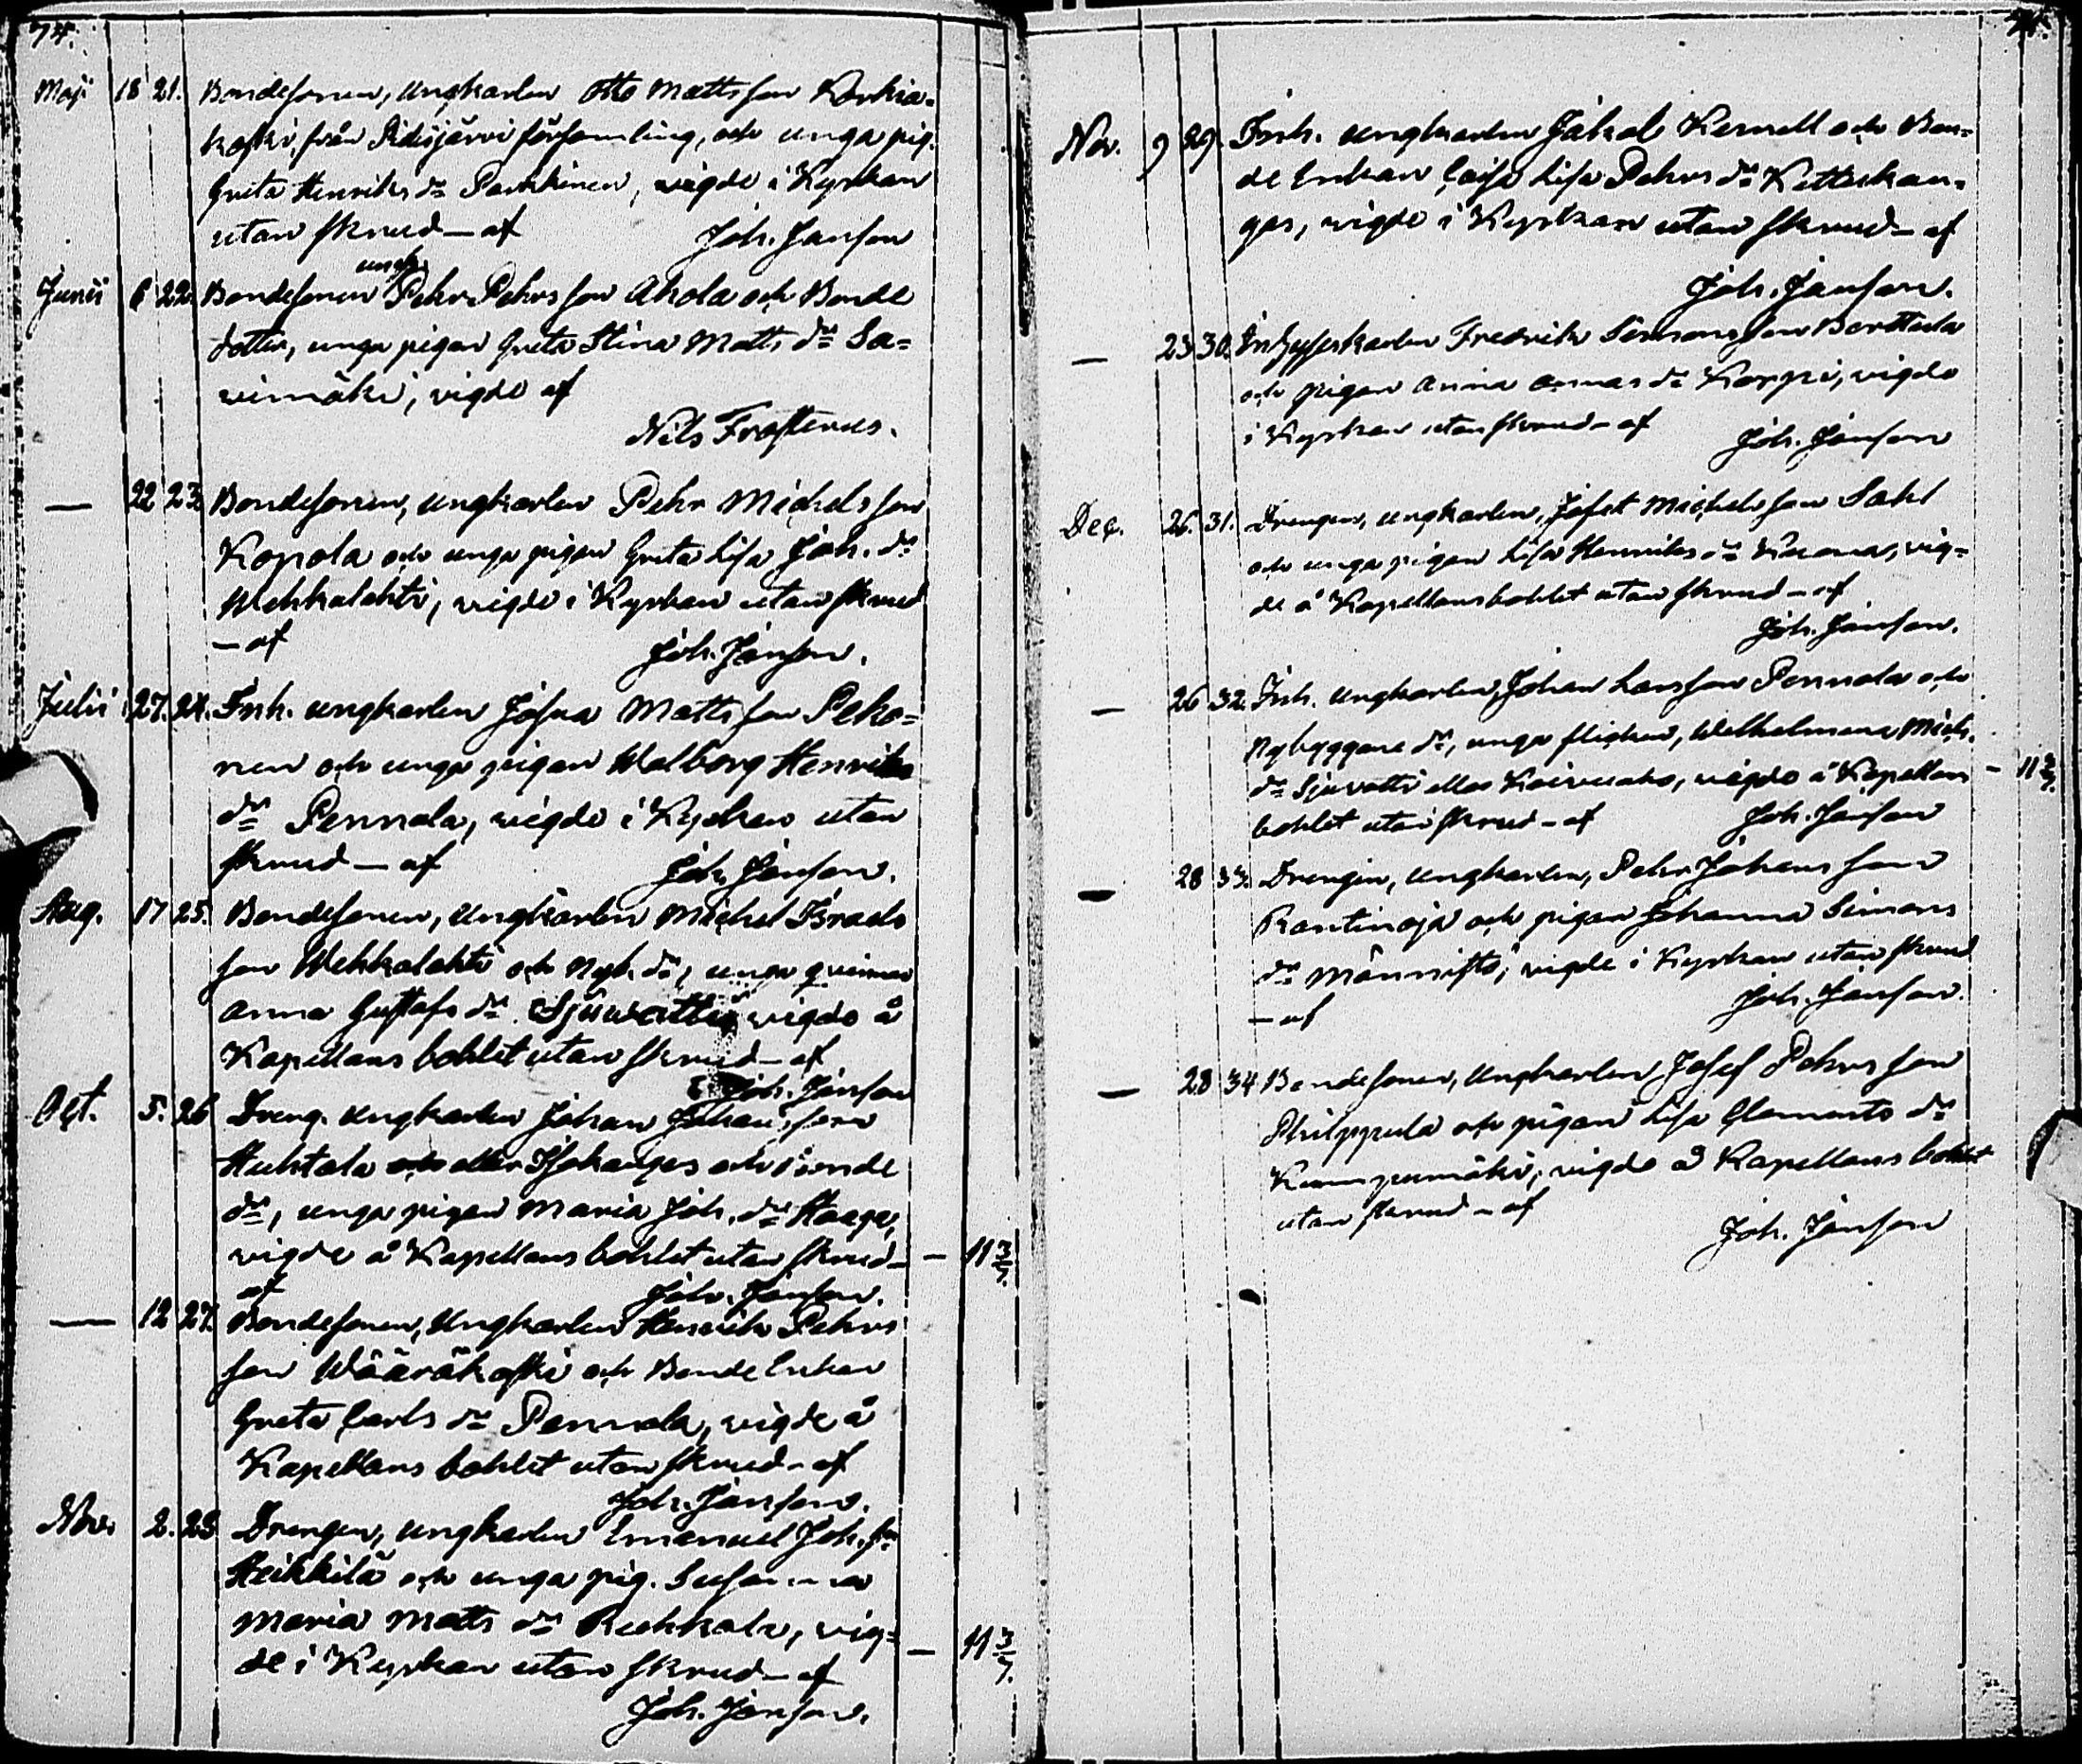 Maji 18 21. Bondesonen, ungkarlen Otto Mattsson Korkia-
koski, från Pidisjärvi församling, och unga pig.
Greta Henriks dr Parkkinen, vigde i Kyrkan
utan skrud – af Joh. Janson
Junii 6 22. Bondesonen ungk. Pehr Pehrsson Ahola och Bonde
dotter, unga pigan Greta Stina Matts dr Sa-
vimäki, vigde af
Nils Frosterus.
— 22 23 Bondesonen, ungkarlen Pehr Michelsson
Kopola och unga pigan Greta Lisa Joh. dr
Wehkalahti, vigde i Kyrkan utan skrud
– af Joh. Janson.
Julii 27. 24. Inh. ungkarlen Josua Mattsson Peko-
nen och unga pigan Walborg Henriks
dr Pennala, vigde i Kyrkan utan
skrud – af Joh. Janson.
Aug. 17 25. Bondesonen, Ungkarlen Michel Israels
son Wehkalahti och Nyb. dr, unga qvinnan
Anna Gustafs dr Sjuvatti vigde å
Kapellans bohlet utan skrud – af
Joh. Janson
Oct. 5. 26 Dreng. ungkarlen Johan Johansson
Huhtala och eller Isokangas och Bonde
dr, unga pigan Maria Joh. dr Haaga,
vigde å Kapellans bohlet utan skrud – – 11 3/7.
af Joh. Janson.
— 12 27. Bondesonen, Ungkarlen Henrik Pehrs
son Wääräkoski och Bonde Enkan
Greta Carls dr Pennala, vigde å
Kapellans bohlet utan skrud – af
Joh. Janson.
Nov. 2. 28 Drengen, ungkarlen Emanuel Joh. sn
Heikkilä och unga pig. Susanna
Maria Matts dr Ruhkala, vig- – 11 3/7.
de i Kyrkan utan skrud – af
Joh. Janson.
Nov. 9 29. Inh. ungkarlen Jakob Kernell och Bon-
de Enkan Caisa Lisa Pehrs dr Kettukan-
gas, vigde i Kyrkan utan skrud – af
Joh. Janson.
— 23 30. Inhyseskarlen Fredrik Simonsson
och pigan Anna dr Korpi, vigde
i Kyrkan utan skrud – af Joh. Janson
Dec. 26. 31. Drengen, ungkarlen, Josef Michelsson Sahl
och unga pigan Lisa Henriks dr Kuona, vig-
de å Kapellans bohlet utan skrud – af
Joh. Janson.
— 26 32. Inh. ungkarlen, Johan Larsson Pennala och
Nybyggare dr, unga flickan, Wilhelmina Mich.
dr Sjuvatti eller Koivuaho, vigde å Kapellans – 11 3/7.
bohlet utan skrud – af Joh. Janson
— 28 33. Drengen, ungkarlen, Pehr Johansson
Rantinoja och pigan Johanna Simons
dr Männistö, vigde i Kyrkan utan skrud
– af Joh. Janson.
— 28 34 Bondesonen, ungkarlen Josef Pehrsson
Philppula och pigan Lisa Clements dr
Kumpumäki, vigde å Kapellans bohlet
utan skrud – af
Joh. Janson